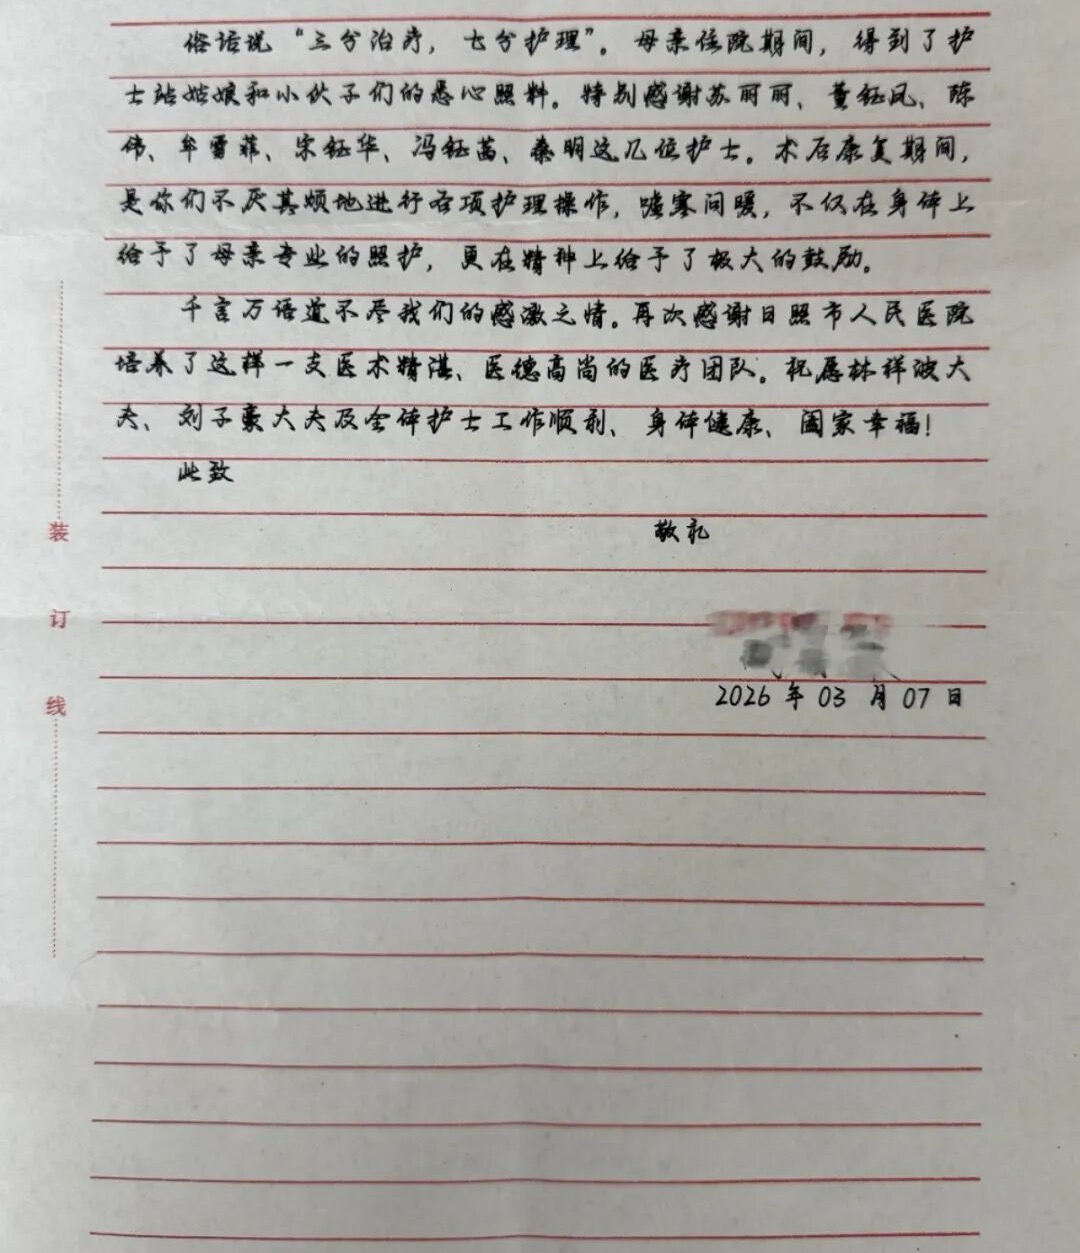 俗话说“三分治疗，七分护理”。母亲住院期间，得到了护
士站姑娘和小伙子们的悉心照料。特别感谢苏丽丽、董钰凤、陈
伟、牟雪菲、宋钰华、冯钰茜、秦明这几位护士。术后康复期间，
是你们不厌其烦地进行各项护理操作，嘘寒问暖，不仅在身体上
给予了母亲专业的照护，更在精神上给予了极大的鼓励。
千言万语道不尽我们的感激之情。再次感谢日照市人民医院
培养了这样一支医术精湛、医德高尚的医疗团队。祝愿林祥波大
夫、刘子豪大夫及全体护士工作顺利、身体健康、阖家幸福！
此致
敬礼
2026 年 03 月 07 日
装
订
线